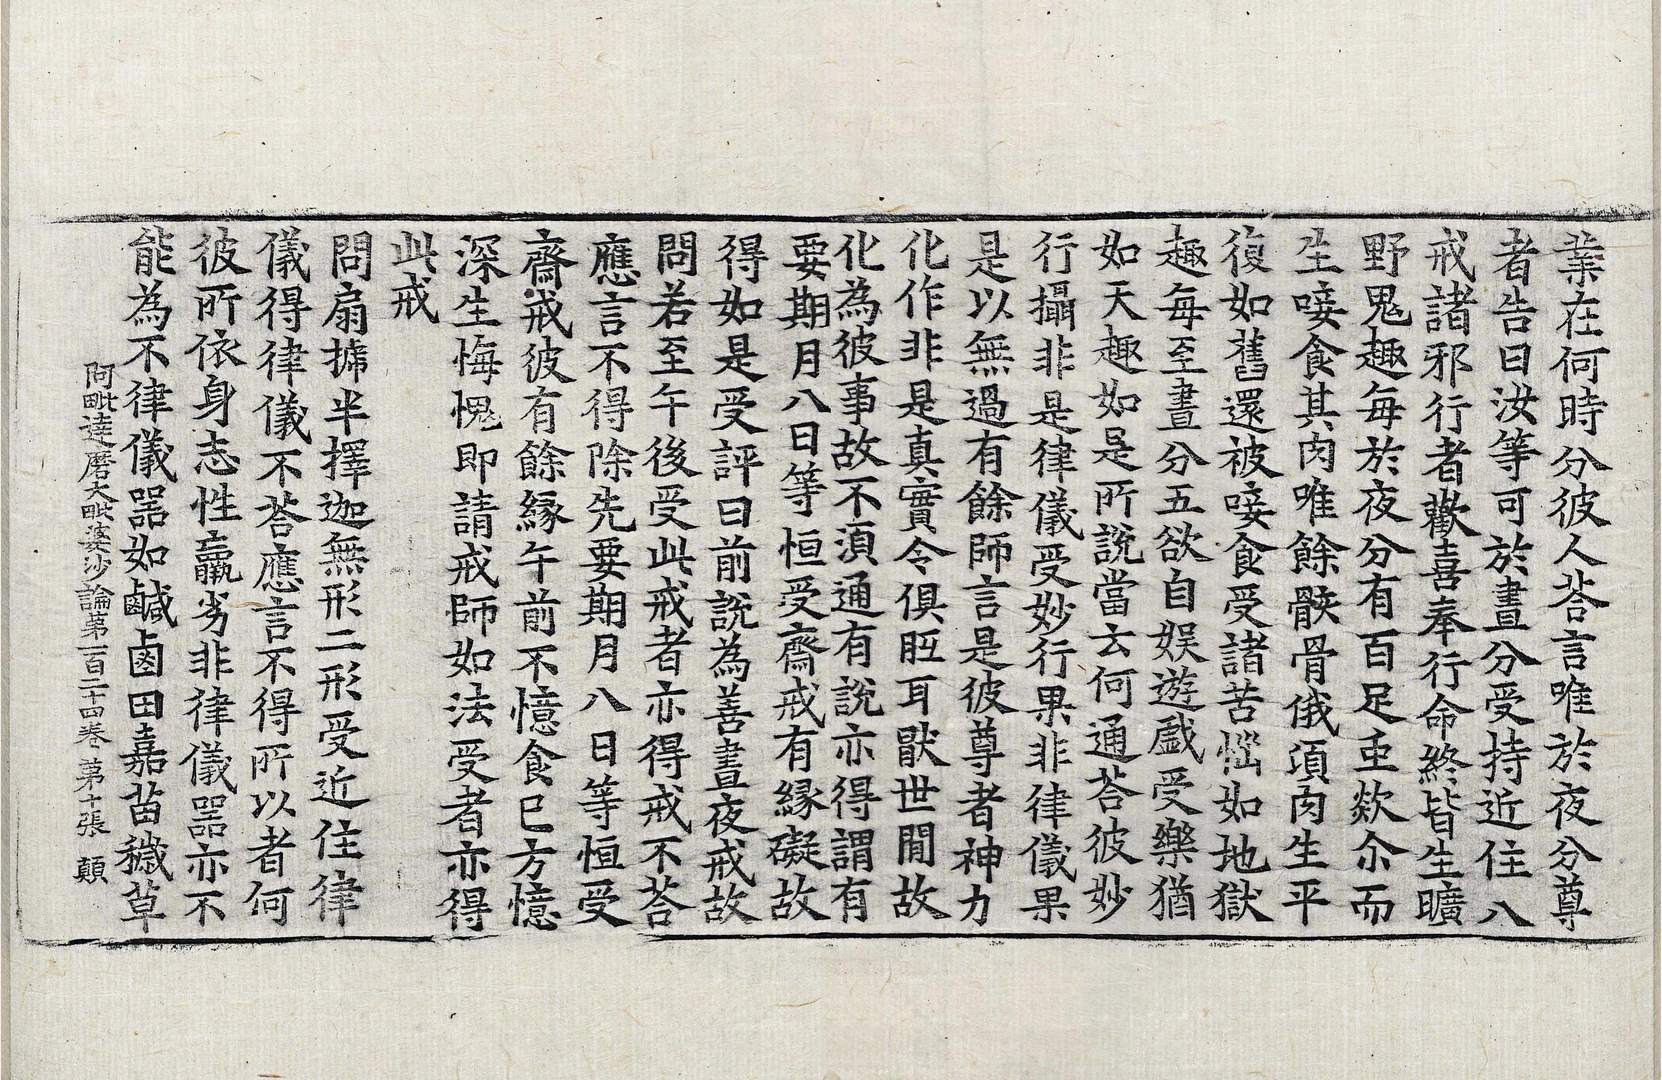 業在何時分彼人荅言唯於夜分尊
者告曰汝等可於晝分受持近住八
戒諸邪行者歡喜奉行命終皆生曠
野鬼趣每於夜分有百足䖝欻尒而
生唼食其肉唯餘骸骨俄湏肉生平
復如舊還被唼食受諸苦惱如地獄
趣每至晝分五欲自娛遊戲受樂猶
如天趣如是所說當云何通荅彼妙
行攝非是律儀受妙行果非律儀果
是以無過有餘師言是彼尊者神力
化作非是真實令俱胝耳猒世閒故
化為彼事故不湏通有說亦得謂有
要期月八日等恒受齋戒有緣礙故
得如是受評曰前說為善晝夜戒故
問若至午後受此戒者亦得戒不荅
應言不得除先要期月八日等恒受
齋戒彼有餘緣午前不憶食已方憶
深生悔愧即請戒師如法受者亦得
此戒
問扇搋半擇迦無形二形受近住律
儀得律儀不荅應言不得所以者何
彼所依身志性羸劣非律儀器亦不
能為不律儀器如鹹鹵田嘉苗穢草
阿毗達磨大毗婆沙論第一百二十四卷 第十張 顛